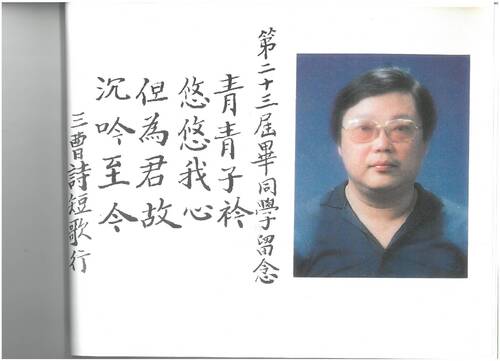 第二十三屆畢同學留念
青青子衿
悠悠我心
但為君故
沉吟至今
三曹詩短歌行